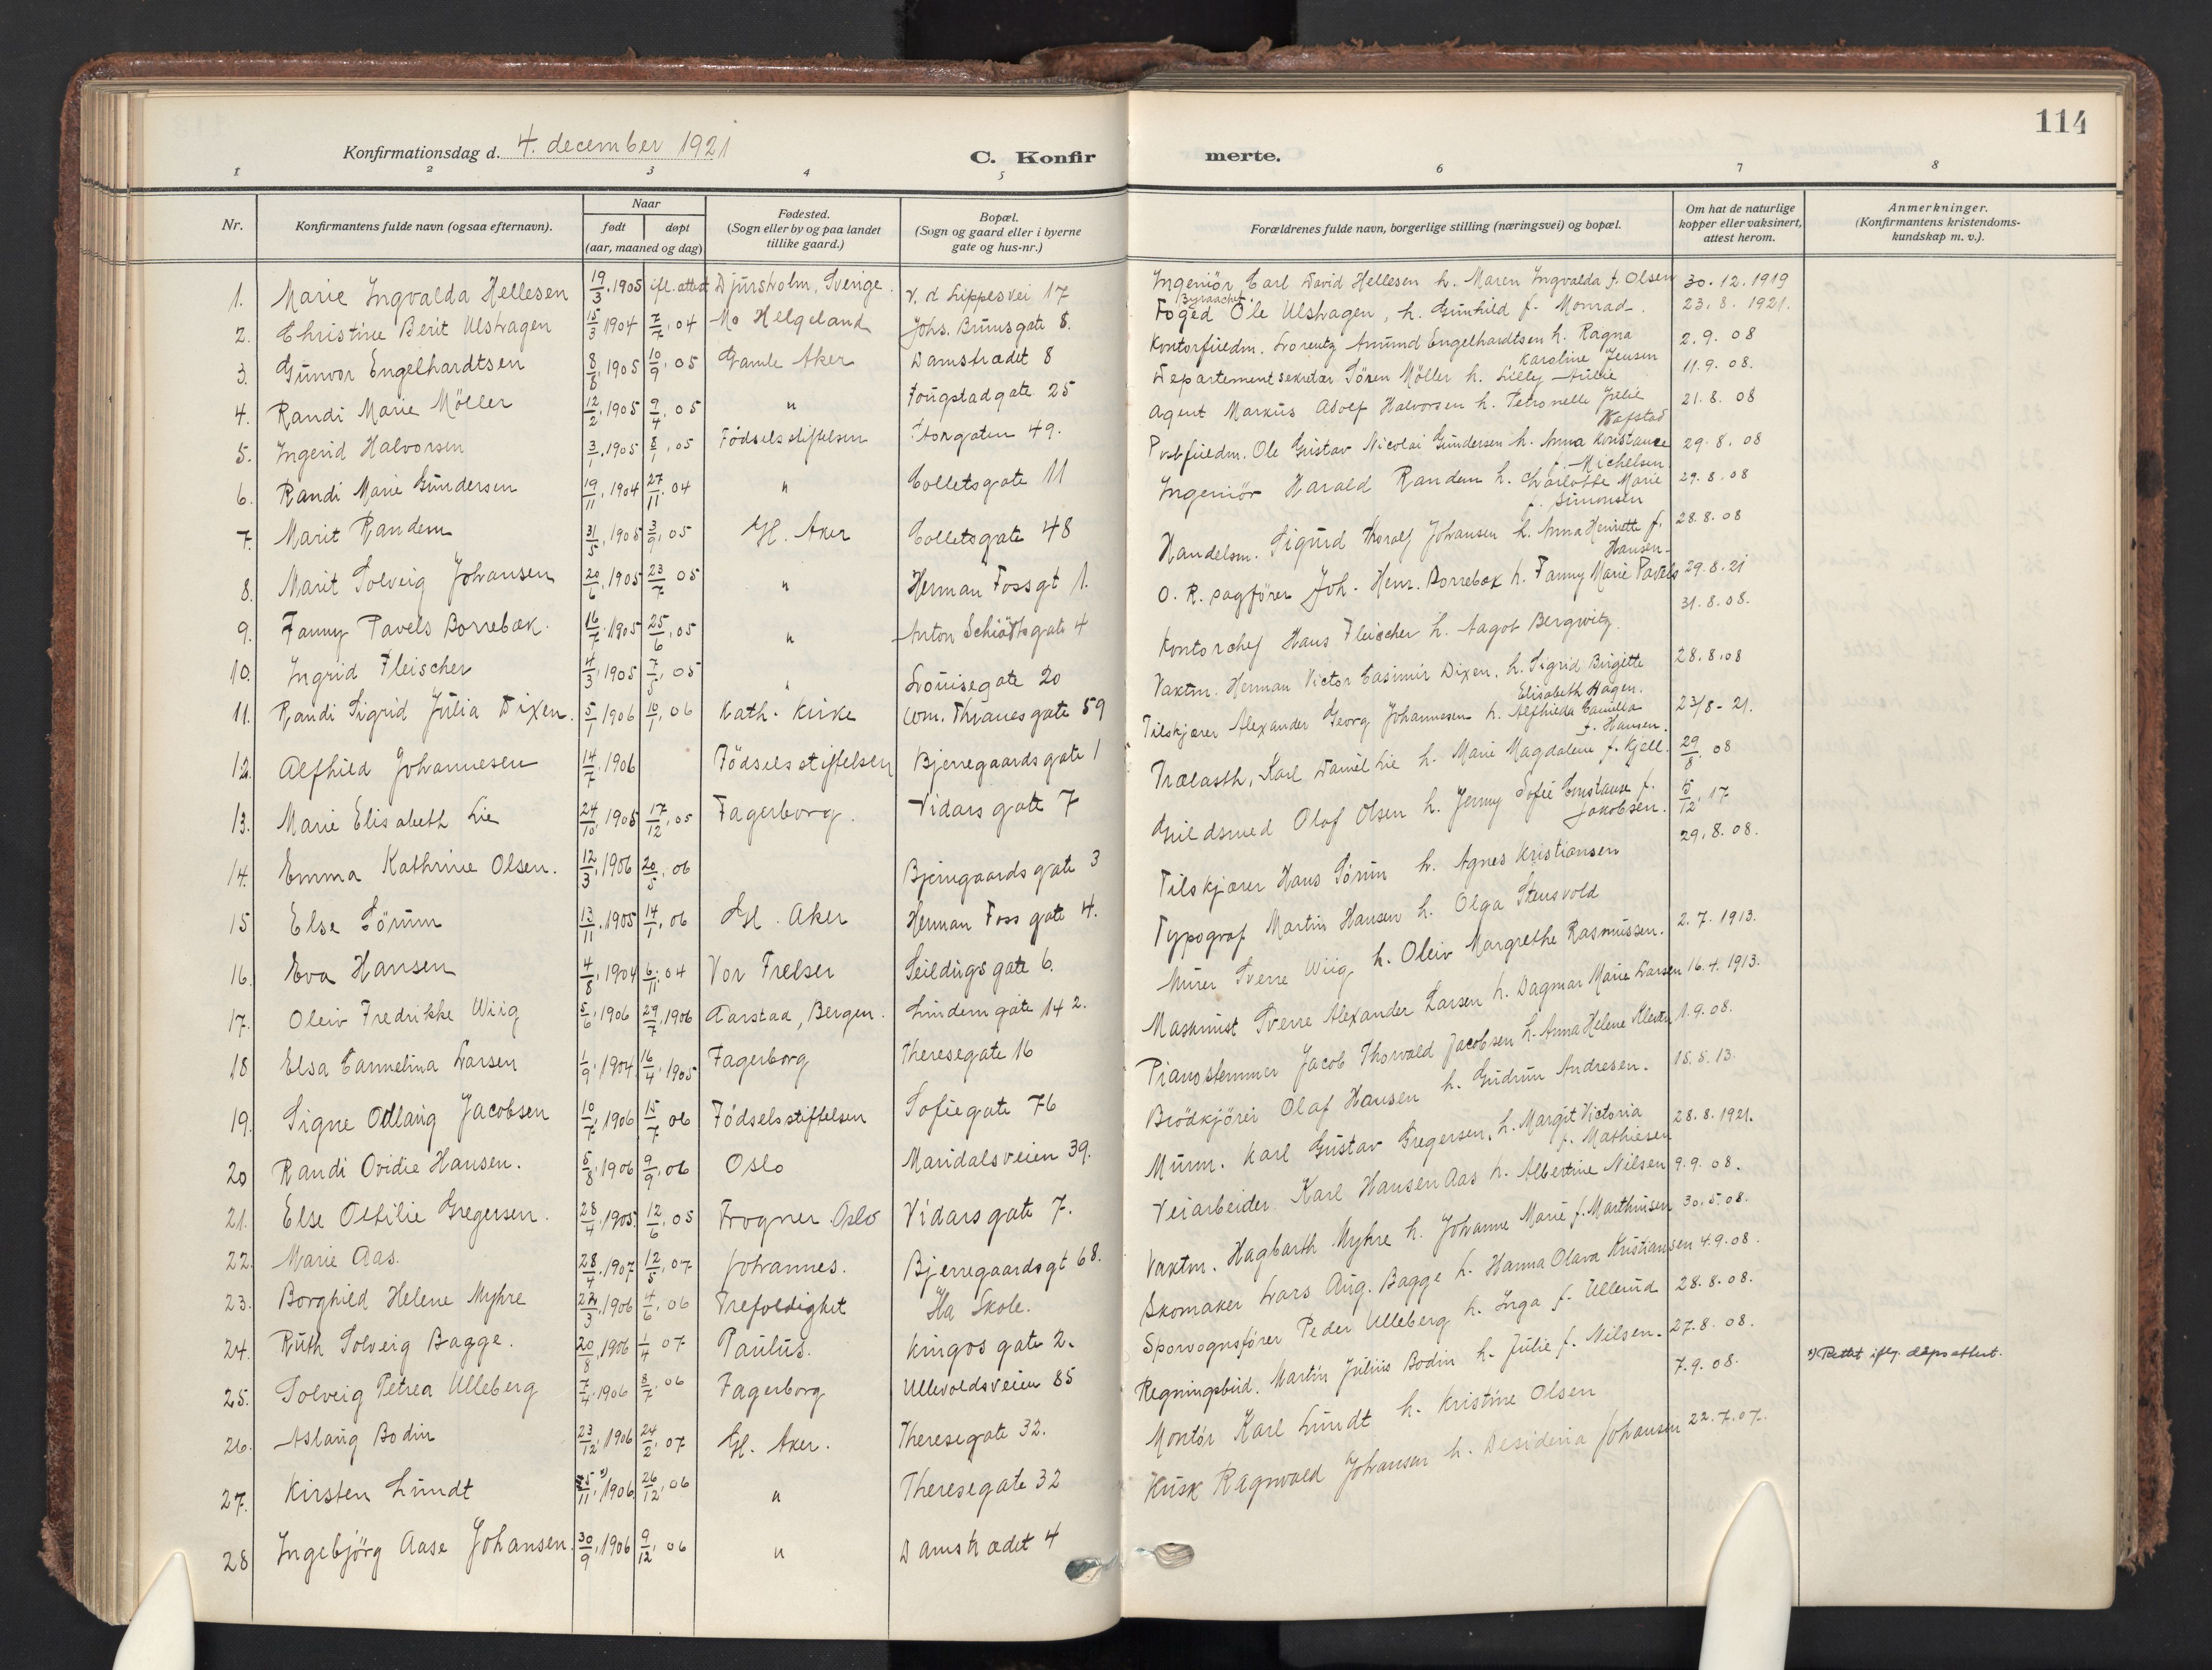 114
Konfirmationsdag d. 4. december 1921
C. Konfirmerte.
1 2 3 4 5 6 7 8
Nr.
Konfirmantens fulde navn (ogsaa efternavn).
Naar
født døpt
(aar, maaned og dag)
Fødested.
(Sogn eller by og paa landet
tillike gaard.)
Bopæl.
(Sogn og gaard eller i byerne
gate og hus-nr.)
Forældrenes fulde navn, borgerlige stilling (næringsvei) og bopæl.
Om hat de naturlige
kopper eller vaksinert,
attest herom.
Anmerkninger.
(Konfirmantens kristendoms-
kundskap m. v.).
1. Marie Ingvalda Hellesen 19/3 1905 ifl. attest Djursholm, Sverige. v. d. Lippesvei 17 Ingeniör Carl David Hellesen h. Maren Ingvalda f. Olsen 30.12.1919
2. Christine Berit Ulshagen 15/3 1904 7/7 04 Mo Helgeland Johs. Brunsgate 8. Foged Ole Ulshagen, h. Gunhild f. Monrad. 23.8.1921.
3. Gunvor Engelhardtsen 8/8 1905 10/9 05 Gamle Aker Damstrædet 8 Kontorfuldm. Lorentz Amund Engelhardtsen h. Ragna Karoline Jensen 2.9.08
4. Randi Marie Möller 12/2 1905 9/4 05 " Fougstadgate 25 Departementsekretær Sören Möller h. Lilly 11.9.08.
5. Ingerid Halvorsen 3/1 1905 8/1 05 Födselsstiftelsen Storgaten 49. Agent Markus Adolf Halvorsen h. Petronelle Julie Hafstad 21.8.08
6. Randi Marie Gundersen 19/11 1904 27/11 04 " Colletsgate 11 Postfuldm. Ole Gustav Nicolai Gundersen h. Anna Konstance f. Michelsen 29.8.08
7. Marit Randem 31/5 1905 3/9 05 Gl. Aker Colletsgate 48 Ingeniör Harald Randem h. Charlotte Marie f. Simonsen 29.8.08
8. Marit Solveig Johansen 20/6 1905 23/7 05 " Herman Fossgt 1. Handelsm. Sigurd Thoralf Johansen h. Anna Henriette f. Hansen. 28.8.08
9. Fanny Pavels Borrebæk. 16/7 1905 25/6 05 " Anton Schiöthsgate 4 O. R. sagförer Joh. Henr. Borrebæk h. Fanny Marie Pavels 29.8.21
10. Ingrid Fleischer 4/3 1905 7/5 05 " Louisegate 20 Kontorchef Hans Fleischer h. Aagot Bergwitz. 31.8.08.
11. Randi Sigrid Julia Dixen. 5/1 1906 10/1 06 Kath. Kirke Wm. Thranesgate 59 Vaktm. Herman Victor Casimir Dixen, h. Sigrid Birgitte Elisabeth Hagen. 28.8.08
12. Alfhild Johannesen 14/7 1906 Födselsstiftelsen Bjerregaardsgate 1 Tilskjærer Alexander Georg Johannesen h. Alfhilda Camilla f. Hansen 23/8-21.
13. Marie Elisabeth Lie 24/10 1905 17/12 05 Fagerborg. Vidarsgate 7 Trælasth. Karl Daniel Lie h. Marie Magdalene f. Kjell. 29/8 08
14. Emma Kathrine Olsen. 12/3 1906 20/5 06 Bjerregaardsgate 3 Guldsmed Olaf Olsen h. Jenny Sofie Constanse f. Jakobsen. 5/12 17
15 Else Sörum 13/11 1905 14/1 06 Gl. Aker Herman Fossgate 4. Tilskjærer Hans Sörum h. Agnes Kristiansen 29.8.08.
16. Eva Hansen 4/8 1904 6/11 04 Vor Frelser Seildugsgate 6. Typograf Martin Hansen h. Olga Stensvold
17. Oleiv Fredrikke Wiig 5/6 1906 29/7 1906 Aarstad, Bergen. Lindemgate 14 2. Murer Sverre Wiig h. Oleiv Margrethe Rasmussen. 2.7.1913.
18 Elsa Carmelina Larsen 1/9 1904 16/4 1905 Fagerborg Theresegate 16 Maskinist Sverre Alexander Larsen h. Dagmar Marie Larsen 16.4.1913.
19. Signe Odlaug Jacobsen 10/7 1906 15/7 06 Födselsstiftelsen Sofiegate 76 Pianostemmer Jacob Thorvald Jacobsen h. Anna Helene 1.9.08.
20 Randi Ovidie Hansen. 5/8 1906 9/9 06 Oslo Maridalsveien 39. Brödkjörer Olaf Hansen h. Gudrun Andresen. 15.5.13.
21. Else Otilie Gregersen. 28/4 1905 12/6 05 Frogner. Oslo Vidarsgate 7. Murm. Karl Gustav Gregersen, h. Margit Victoria f. Mathiesen 28.8.1921.
22. Marie Aas. 28/4 1907 12/5 07 Johannes. Bjerregaardsgt 68. Veiarbeider Karl Hansen Aas h. Albertine Nilsen 9.9.08.
23. Borghild Helene Myhre 22/3 1906 4/6 06 Trefoldighet Ila Skole. Vaktm. Hagbarth Myhre h. Johanne Marie f. Marthinsen 30.5.08.
24. Ruth Solveig Bagge. 20/8 1906 1/4 07 Paulus. Kingosgate 2. Skomaker Lars Aug. Bagge h. Hanna Olava Kristiansen 4.9.08.
25. Solveig Petrea Ulleberg 7/4 1906 8/7 06 Fagerborg Ullevoldsveien 85 Sporvognsförer Peder Ulleberg h. Inga f. Ullerud 28.8.08.
26. Aslaug Bodin 23/12 1906 24/2 07 Gl. Aker. Theresegate 32. Regningsbud. Martin Julius Bodin h. Julie f. Nilsen. 27.8.08.
27. Kirsten Lundt 5/11 1906 26/12 06 " Theresegate 32 Montör Karl Lundt h. Kristine Olsen 7.9.08. Rettet iflg. dåpsattest.
28 Ingebjörg Aase Johansen. 30/9 1906 9/12 06 " Damstrædet 4 Kusk Ragnvald Johansen h. Desideria Johansen 22.7.07.